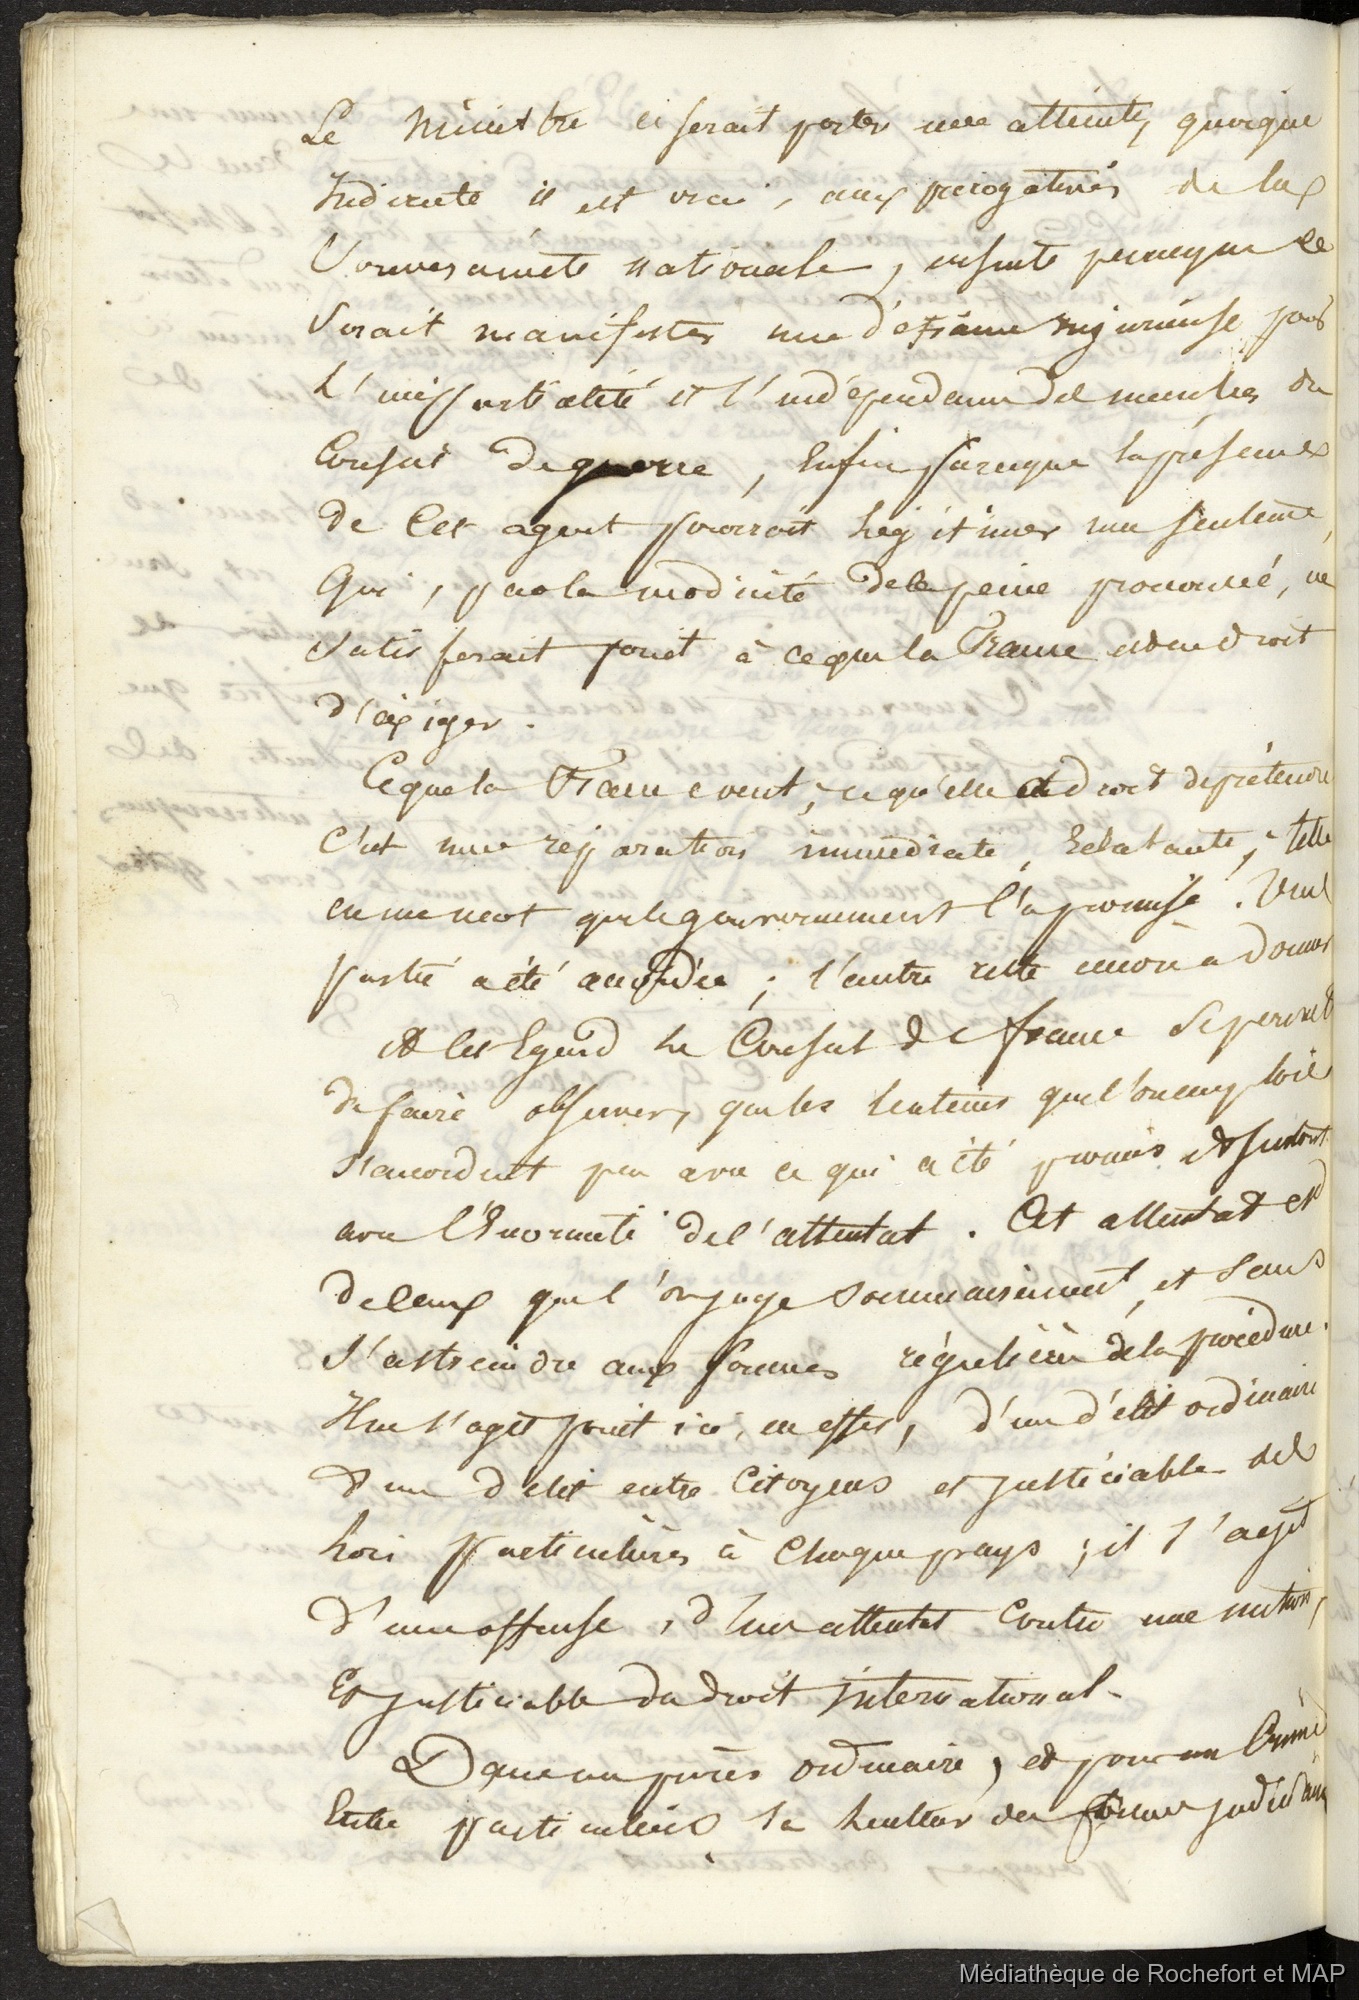 Le Ministre ce serait porter une atteinte, quoique
Indirecte il est vrai, aux prérogatives de la
Souveraineté nationale, ensuite parceque ce
Serait manifester une défiance injurieuse pour
L'impartialité et l'indépendance des membres du
Conseil de guerre, Enfin parceque la présence
de Cet agent pourrait Légitimer une Sentence,
Qui, par la modicité de la peine prononcée, ne
Satisferait point à ce que la France a droit
d'exiger.
Ce que la France veut, ce qu'elle a droit de prétendre
C'est une réparation immédiate, Eclatante, telle
en un mot que le gouvernement l'a promise. Une
partie a été accordée ; l'autre reste encore à donner
A Cet Egard Le Consul de france Se permet
de faire observer, que les lenteurs que l'on emploie
S'accordent peu avec ce qui a été promis et surtout
avec l'Enormité de l'attentat. Cet attentat est
de ceux que l'on juge Sommairement et Sans
S'astreindre aux formes régulières de la procédure.
Il ne s'agit point ici, en effet, d'un délit ordinaire
d'un délit entre Citoyens et justiciable des
Lois particulières à Chaque pays ; il s'agit
d'une offense, d'un attentat Contre une nation,
Et justiciable du droit international.
Dans un procès ordinaire, et pour un Crime
Entre particuliers la lenteur des formes judiciaires
Médiathèque de Rochefort et MAP